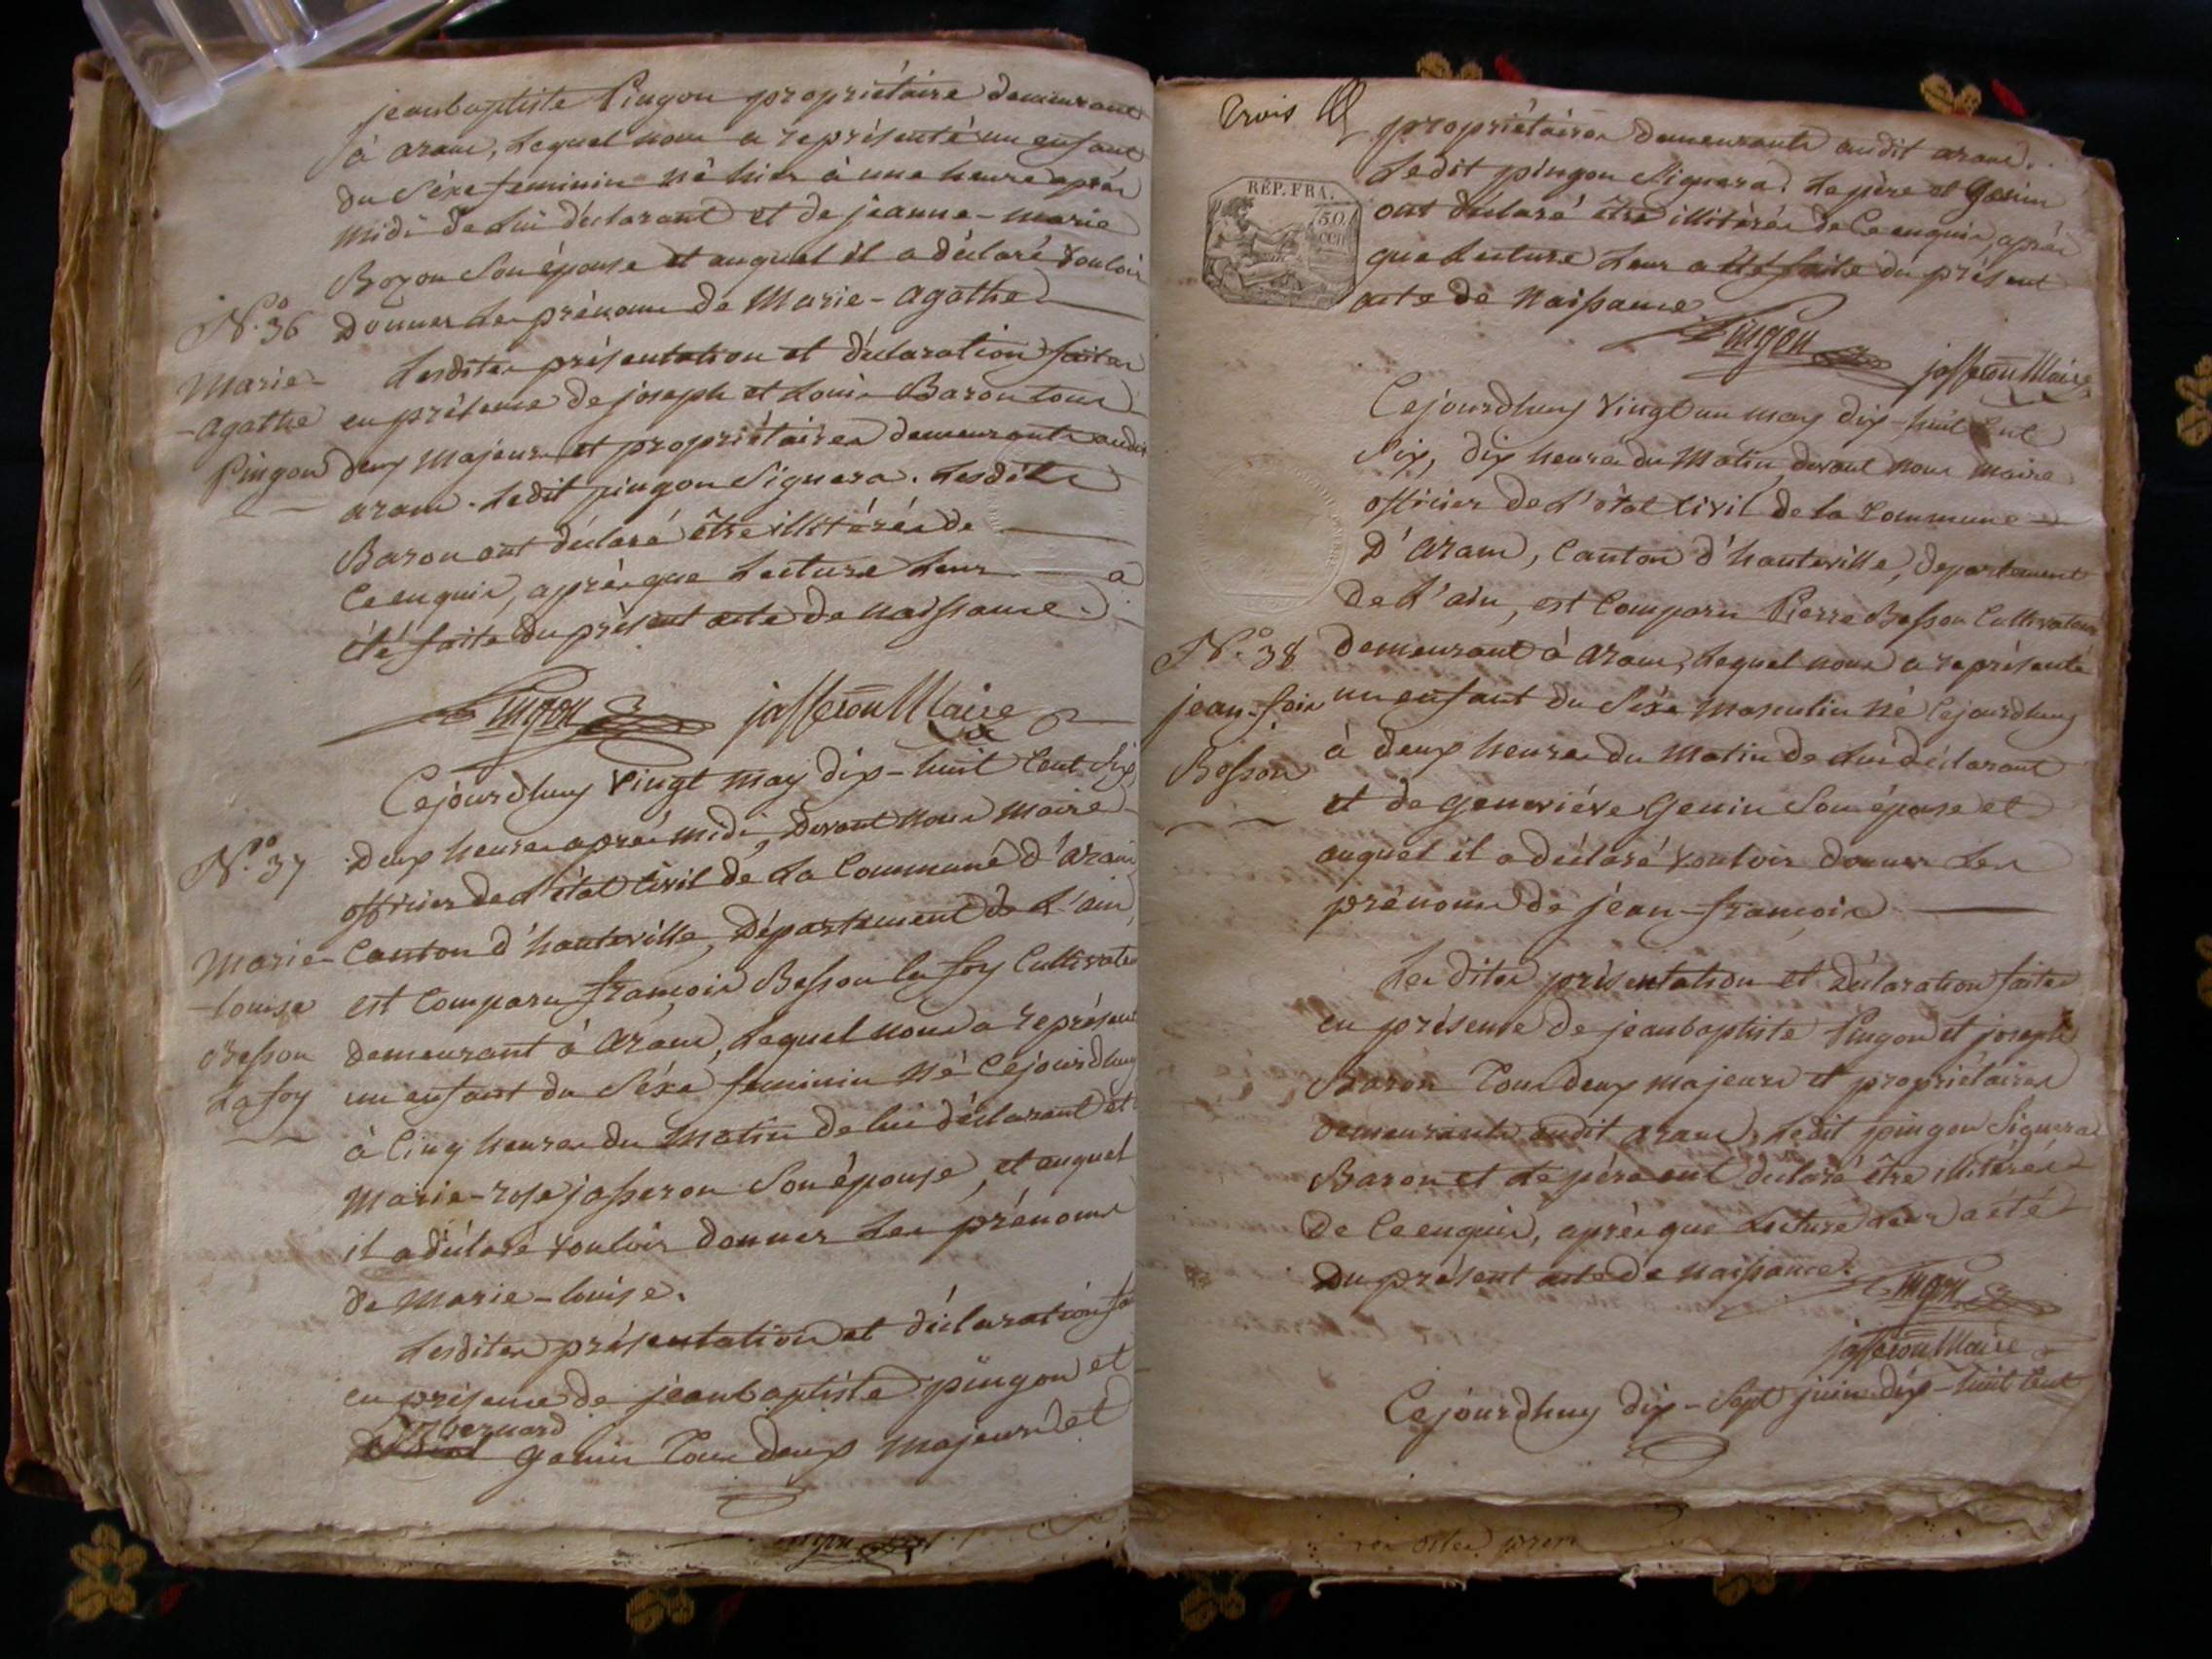 jeanbaptiste Pingon propriétaire demeurant
à aranc, Lequel nous a représenté un enfant
du Séxe feminin né hier à une heure après
midi de Lui déclarant et de jeanne-marie
Bozon Son épouse et auquel il a déclaré vouloir
N.o 36
Donner Les prénoms de Marie-agathe
Marie-
-agathe
Pingon
Lesdites présentation et déclaration faites
en présence de joseph et Louis Baron tous
deux majeurs et propriétaires demeurants audit
aranc. Ledit pingon Signera. Lesdits
Baron ont déclaré être illitérés de
Ce enquis, après que Lecture Leur a
été faite du présent acte de naissance.
Pingon jasseron Maire
Cejourdhuy vingt may dix-huit Cent Six
N.o 37
Deux heures après midi, Devant nous maire
officier de L'état Civil de La Commune d'aranc
Marie-
-louise
Besson
Lafoy
Canton d'hauteville, Département de L'ain,
est Comparu françois Besson lafoy Cultivateur
demeurant à aranc, Lequel nous a représenté
un enfant du Séxe feminin né Cejourdhuy
à Cinq heures du Matin de lui déclarant et
Marie-rose jasseron Son épouse, et auquel
il a déclaré vouloir donner Les prénoms
de Marie-louise.
Lesdites présentation et déclaration
en présence de jeanbaptiste pingon et
bernard
genin Tous deux majeurs et
Trois
propriétaires demeurants audit aranc.
Ledit pingon Signera. Le père et Genin
ont déclaré être illitérés de Ce enquis, après
que Lecture Leur a été faite du présent
acte de Naissance
RÉP. FRA.
Pingon
jasseron Maire
Cejourdhuy vingt un may dix-huit Cent
Six, dix heures du Matin devant nous maire
officier de L'état Civil de la Commune
D'aranc, Canton d'hauteville, departement
de L'ain, est Comparu Pierre Besson Cultivateur
N.o 38
demeurant à aranc, Lequel nous a représenté
jean-fois
Besson
un enfant du Séxe Masculin né Cejourdhuy
à deux heures du Matin de Lui déclarant
et de geneviéve Genin Son épouse et
auquel il a déclaré vouloir donner Les
prénoms de jéan-françois
Les dites présentation et Déclaration faites
en présence de jeanbaptiste Pingon et joseph
Baron Tous deux majeurs et propriétaires
demeurants audit aranc, Ledit pingon Signera
Baron et Le père ont déclaré être illitérés
de Ce enquis, après que Lecture Leur a été
Du présent acte de naissance.
Pingon
jasseron Maire
Cejourdhuy dix-Sept juin dix-huit Cent